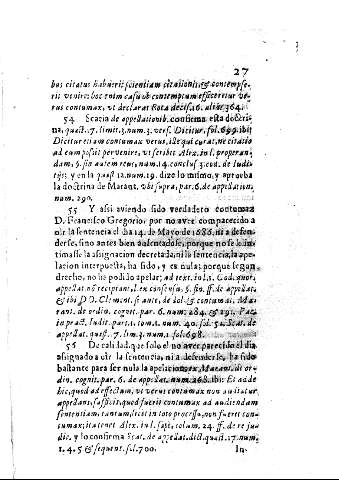 27
bus citatus habuerit scientiam citationis, & contempse-
rit venire: hoc enim casu ob contemptum efficeretur ve-
rus contumax, ut declarat Rota decis. 16. aliàs 364.
54 Scacia de appellationib. confirma esta doctri-
na, quæst. 7. limit. 3. num. 3. vers. Dicitur, fol. 699. ibi:
Dicitur etiam contumax verus, is qui curat, ne citatio
ad eum possit pervenire, ut scribit Alex. in l. properan-
dam, §. sin autem reus, num. 14. conclus. 3. cod. de Iudi-
tijs; y en la quæst. 12. num. 19. dize lo mismo, y aprueba
la doctrina de Marant. ubi supra, par. 6. de appellation.
num. 290.
55 Y assi aviendo sido verdadero contumaz
D. Francisco Gregorio, por no aver comparecido a
oìr la sentencia el dia 14. de Mayo de 1686. ni a defen-
derse, sino antes bien ausentadose, porque no se le in-
timasse la assignacion decretada, ni la sentencia, la ape-
lacion interpuesta, ha sido, y es nula; porque segun
drecho, no ha podido apelar; ad text. in l. 1. Cod. quor.
appellat. non recipiant. l. ex consensu, §. fin. ff. de appellat.
& ibi DD. Clement. si ante, de dol. & contumac. Ma-
rant. de ordin. cognit. par. 6. num. 284. & 291. Pac.
in pract. Iudit. part. 1. tom. num. 40. fol. 52. Scac. de
appellat. quæst. 7. lim. 3. num. 1. fol. 698.
56 De tal suerte que solo el no aver parecido el dia
assignado a oìr la sentencia, ni a defenderse, ha sido
bastante para ser nula la apelacion ex Marant. de or-
din. cognit. par. 6. de appellat. num. 268. ibi: Et adde
hic, quod ad effectum, ut verus contumax non auditur
appellans, sufficit quod fuerit contumax ad audiendam
sententiam tantum, licet in toto processu, non fuerit con-
tumax; ita tenet Alex. in l. sepè, colum. 24. ff. de re ju-
dic. y lo confirma Scac. de appellat. dict. quæst. 17. num.
1. 4. 5. & sequent. fol. 700.
In-